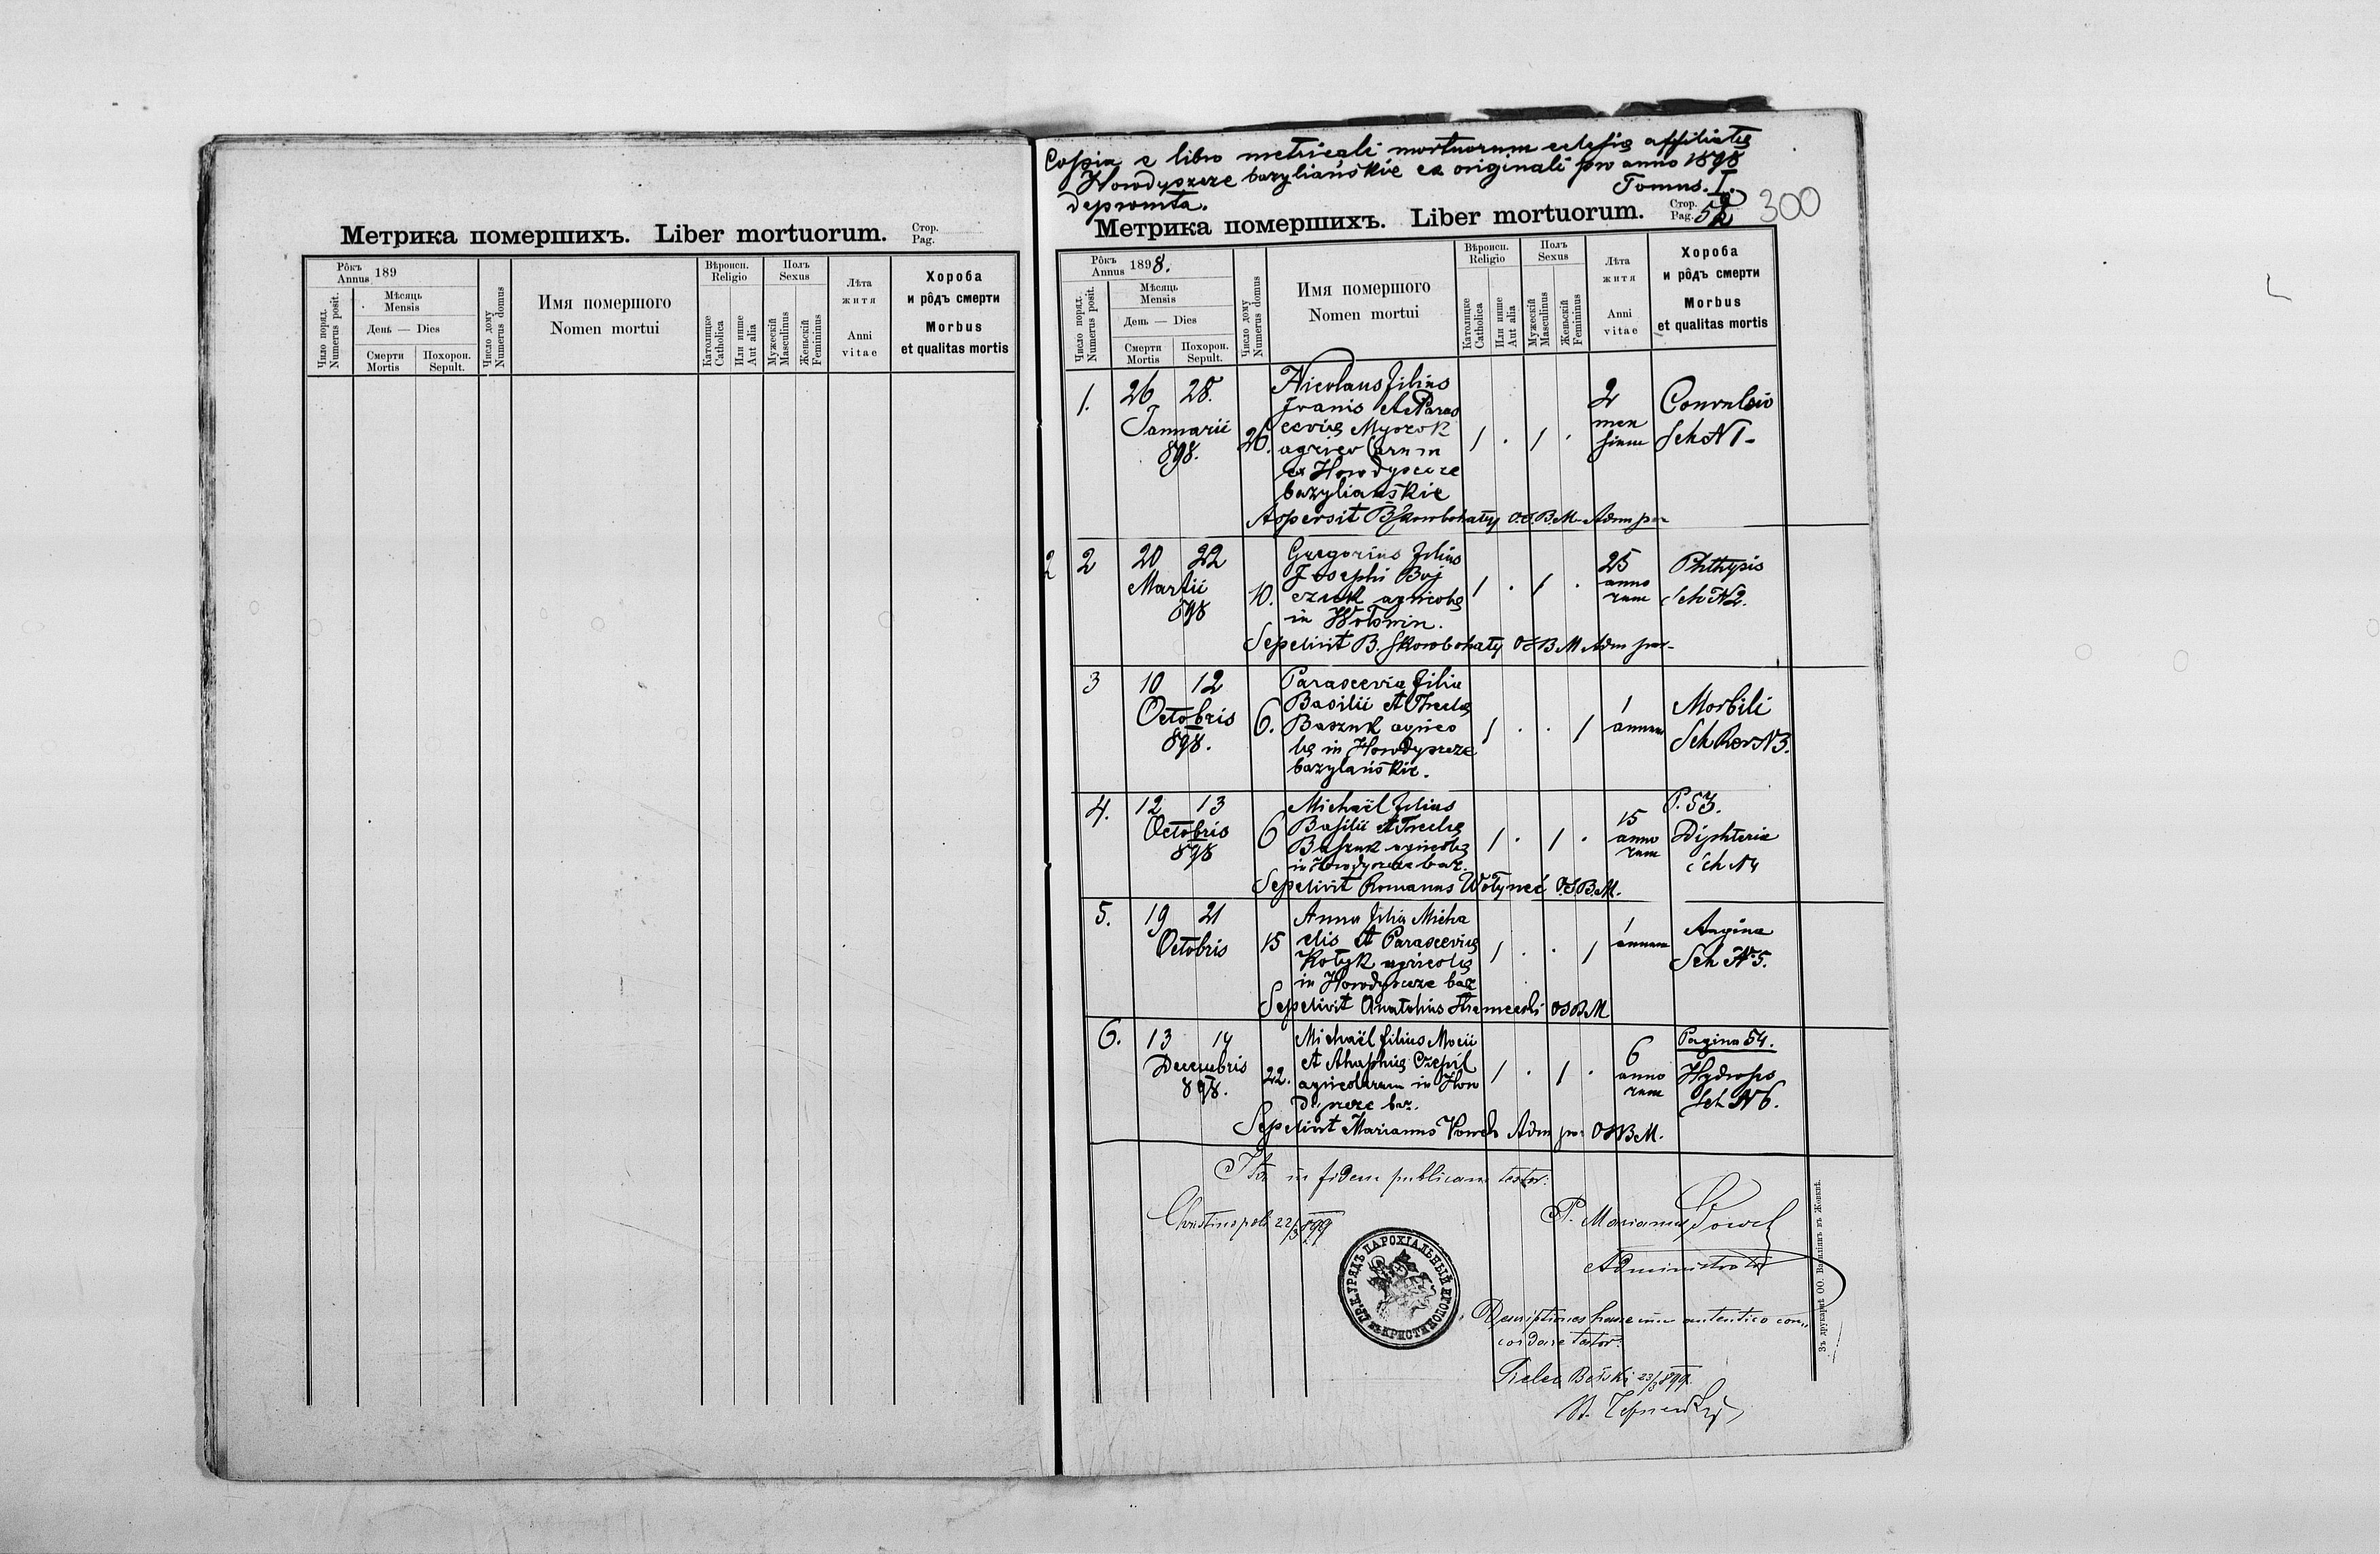 Метрика помершихъ. Liber mortuorum. Стор. Pag.
Рôкъ Annus 189
Число поряд. Numerus posit.
Мѣсяць Mensis
День — Dies
Смерти Mortis
Похорон. Sepult.
Число дому Numerus domus
Имя помершого
Nomen mortui
Вѣроисп. Religio
Католицке Catholica
Или инше Aut alia
Полъ Sexus
Мужескій Masculinus
Женьскій Femininus
Лѣта житя
Anni vitae
Хороба
и рôдъ смерти
Morbus
et qualitas mortis
Copia e libro metricali mortuorum eclesiae affiliatae
Horodyszcze bazyliańskie ex originali pro anno 1898
deprompta.
Tomus. I.
Метрика помершихъ. Liber mortuorum. Стор. Pag. 52
300
Рôкъ Annus 1898.
Число поряд. Numerus posit.
Мѣсяць Mensis
День — Dies
Смерти Mortis
Похорон. Sepult.
Число дому Numerus domus
Имя помершого
Nomen mortui
Вѣроисп. Religio
Католицке Catholica
Или инше Aut alia
Полъ Sexus
Мужескій Masculinus
Женьскій Femininus
Лѣта житя
Anni vitae
Хороба
и рôдъ смерти
Morbus
et qualitas mortis
1. 26 28.
Januarii
898.
26.
Nicolaus filius
Ivanis et Paras
ceviae
agricolarum
ex Horodyszcze
bazyliańskie
1 . 1 .
2
men
sium
Convulsio
Sch N 1
Aspersit B Skorobohatyj O.S.B.M. Adm par
2 2 20 22
Martii
898
10.
Gregorius filius
Josephi Boj
czuk agricola
in Wołświn.
1 . 1 .
25
anno
rum
Phthysis
Sch N 2.
Sepelivit B. Skorobohatyj OSBM Adm par
3 10 12
Octobris
898.
6.
Parascevia filia
Basilii et Theclae
Baszuk agrico
lae in Horodyszcze
bazylańskie.
1 . . 1
1
annum
Morbili
Sch Ror N 3.
4. 12 13
Octobris
898
6
Michaël filius
Basilii et Theclae
Baszuk agricolae
in Horodyszcze baz.
1 . 1 .
15
anno
rum
P. 53.
Diphteria
Sch N 4
Sepelivit Romanus Wołyneć O.S.B.M.
5. 19 21
Octobris
15
Anna filia Micha
elis et Parasceviae
Kotyk agricolae
in Horodyszcze baz
1 . . 1
1
annum
Angina
Sch N 5.
Sepelivit Anatolius OSBM
6. 13 14
Decembris
898.
22.
Michaël filius Mocii
et Ahaphiae Czepil
agricolarum in Horo
dyszcze baz.
1 . 1 .
6
anno
rum
Pagina 54.
Hydrops
Sch N 6.
Sepelivit Marianus Powch Adm par OSBM.
Ita in fidem publicam testor:
Christinopoli 22/3 899
P. Marianus Powch
Administrator
ГР. К. УРЯДЪ ПАРОХІАЛЬНЫЙ ВЪ КРИСТИНОПОЛИ
Descriptiones hasce cum autentico con
cordare testor:
Bełski 23/3 899.
Зъ друкарнѣ ОО. Василіянъ въ Жовквѣ.